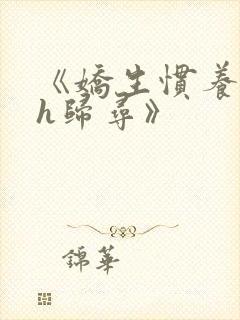 《嬌生慣養
h歸尋》
錦華